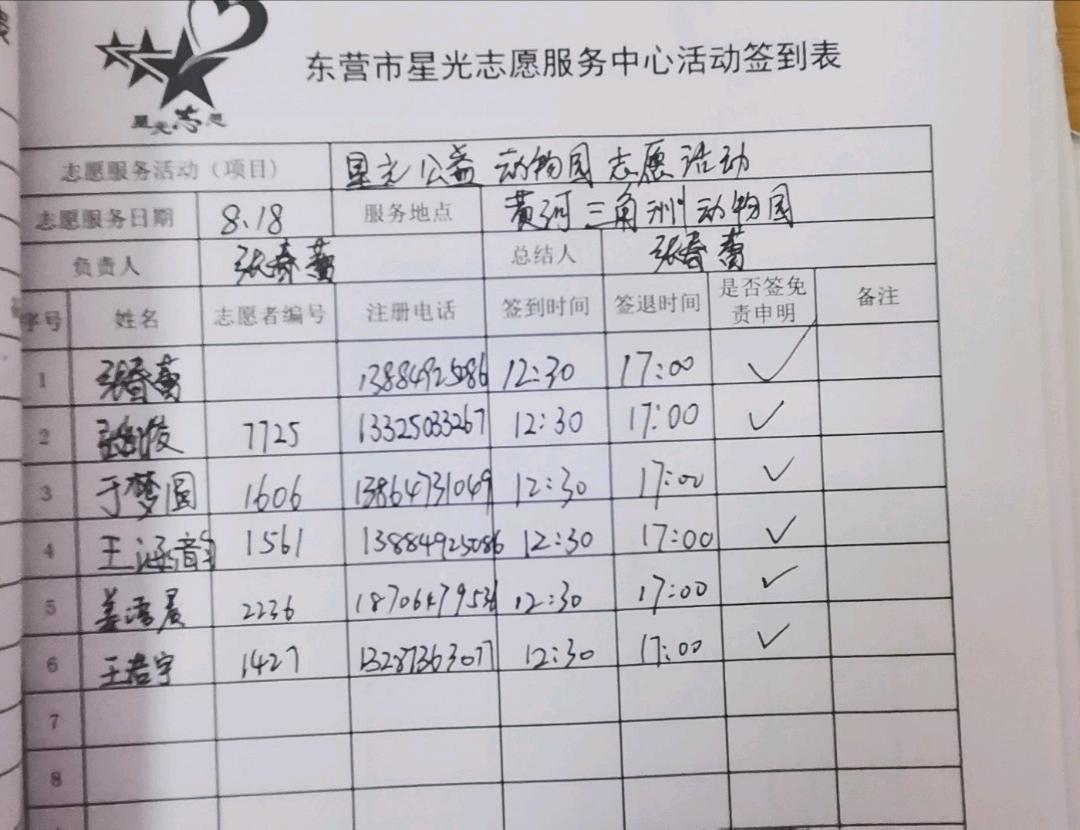 星光志愿
东营市星光志愿服务中心活动签到表
志愿服务活动（项目） 星光公益 动物园志愿活动
志愿服务日期 8.18 服务地点 黄河三角洲动物园
负责人 张春 总结人 张春
序号 姓名 志愿者编号 注册电话 签到时间 签退时间 是否签免责申明 备注
1 张春 13884925086 12:30 17:00 ✓
2 7725 13325033267 12:30 17:00 ✓
3 于梦圆 1606 13864731049 12:30 17:00 ✓
4 王涵韵 1561 13884925086 12:30 17:00 ✓
5 姜 晨 2236 18706479536 12:30 17:00 ✓
6 王浩宇 1427 13287363077 12:30 17:00 ✓
7
8